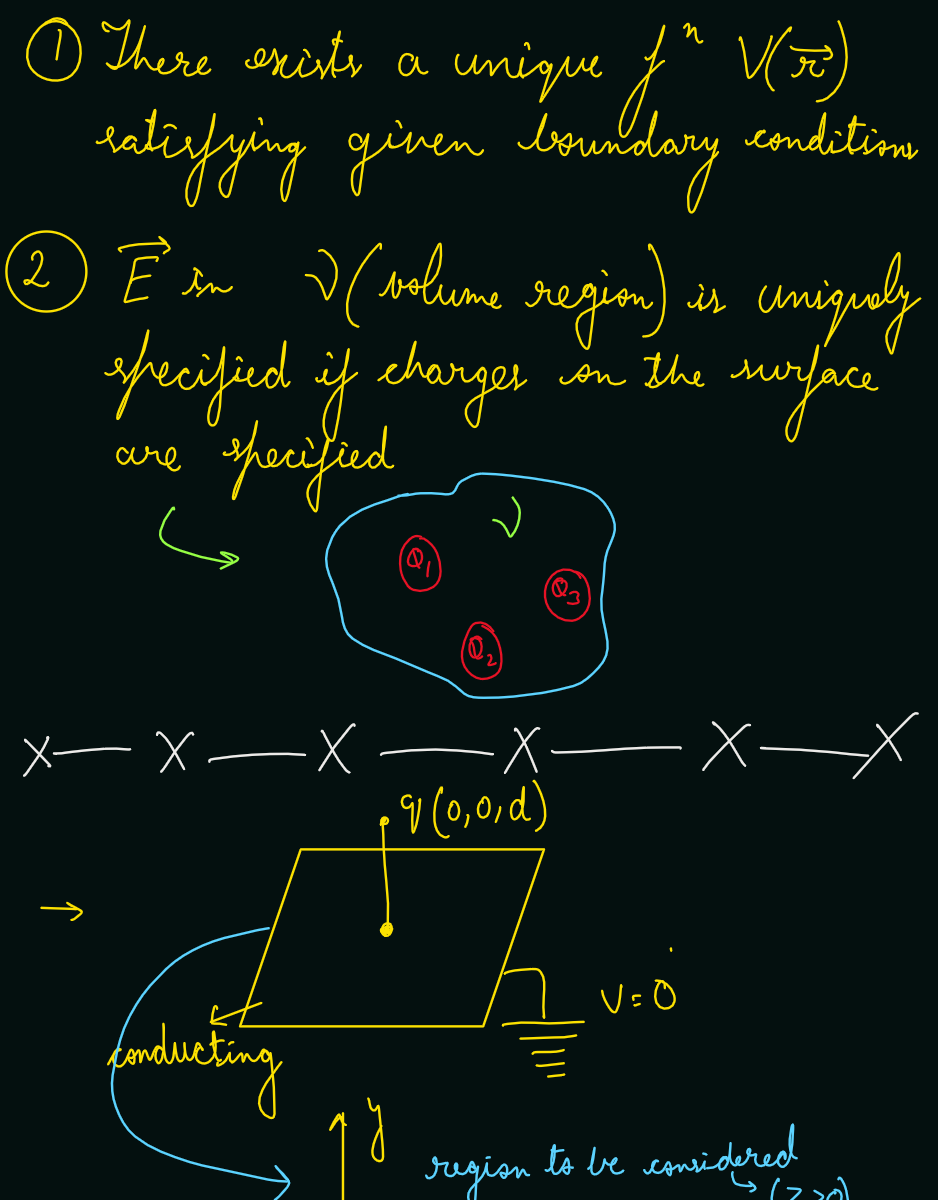 ① There exists a unique fⁿ V(r⃗)
satisfying given boundary conditions
② E⃗ in V (volume region) is uniquely
specified if charges on the surface
are specified
V
Q₁
Q₃
Q₂
X — X — X — X — X — X
q(0,0,d)
V=0
conducting
y
region to be considered
(z>0)